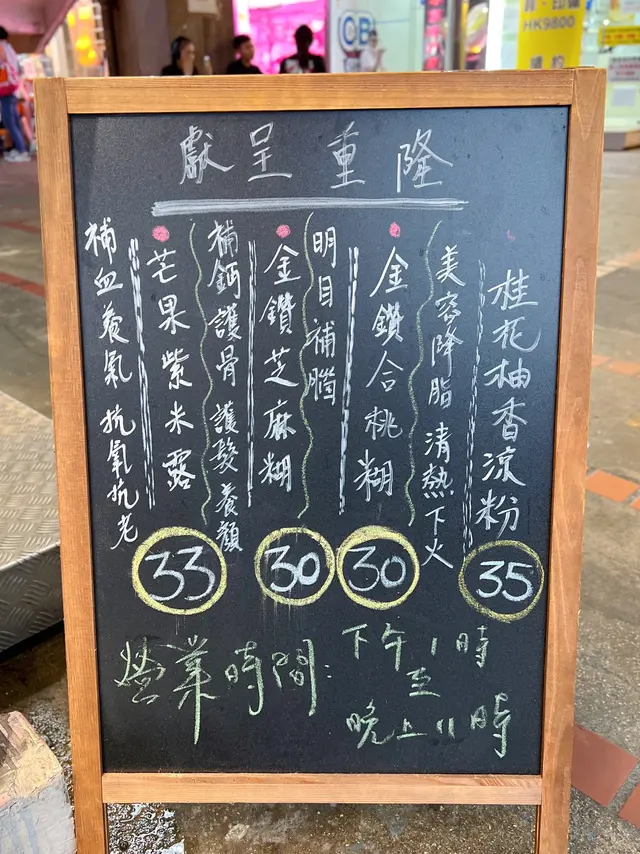 隆重呈獻
桂花柚香涼粉
35
美容降脂 清熱下火
金鑽合桃糊
30
明目補腦
金鑽芝麻糊
30
補鈣護骨 護髮養顏
芒果紫米露
33
補血養氣 抗氧抗老
營業時間:
下午1時
至
晚上11時
CB
HK9800